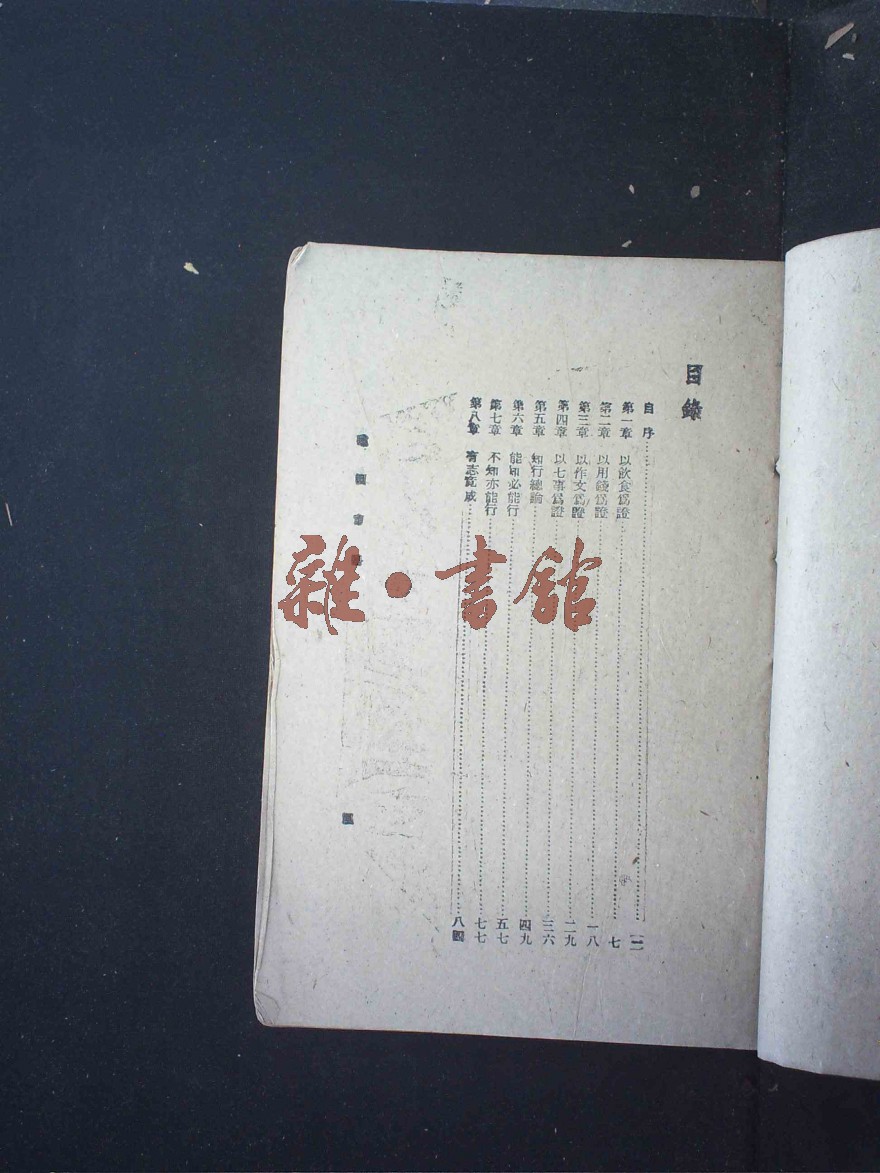 目錄
自序……一
第一章 以飲食為證……七
第二章 以用錢為證……一八
第三章 以作文為證……二九
第四章 以七事為證……三六
第五章 知行總論……四九
第六章 能知必能行……五七
第七章 不知亦能行……七七
第八章 有志竟成……八四
雜·書館